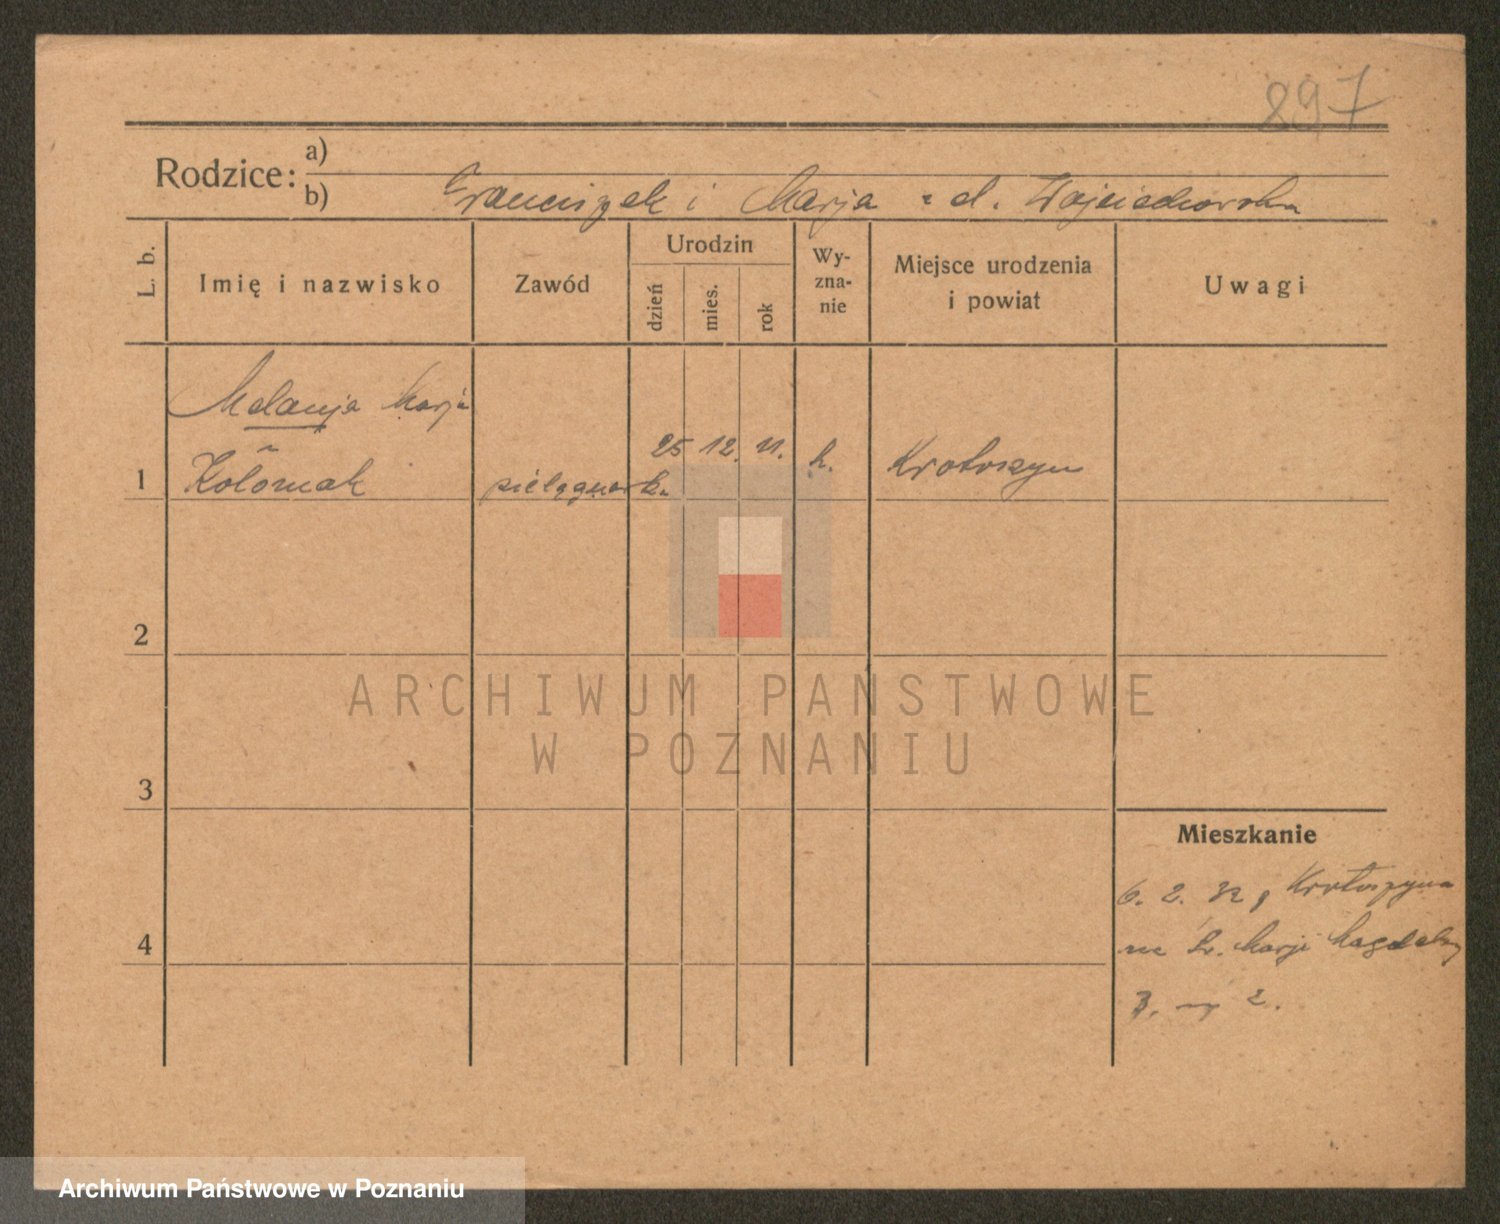 897
Rodzice:
a)
b) Franciszek i Marja z d. Wojciechowska
L. b.
Imię i nazwisko
Zawód
Urodzin
dzień
mies.
rok
Wy-
zna-
nie
Miejsce urodzenia
i powiat
Uwagi
Melanja Marja
1 Kołomak pielęgniarka 25 12. 11. k. Krotoszyn
2
ARCHIWUM PAŃSTWOWE
W POZNANIU
3
Mieszkanie
6. 2. 32 z Krotoszyna
na św. Marji Magdaleny
4
2.
Archiwum Państwowe w Poznaniu